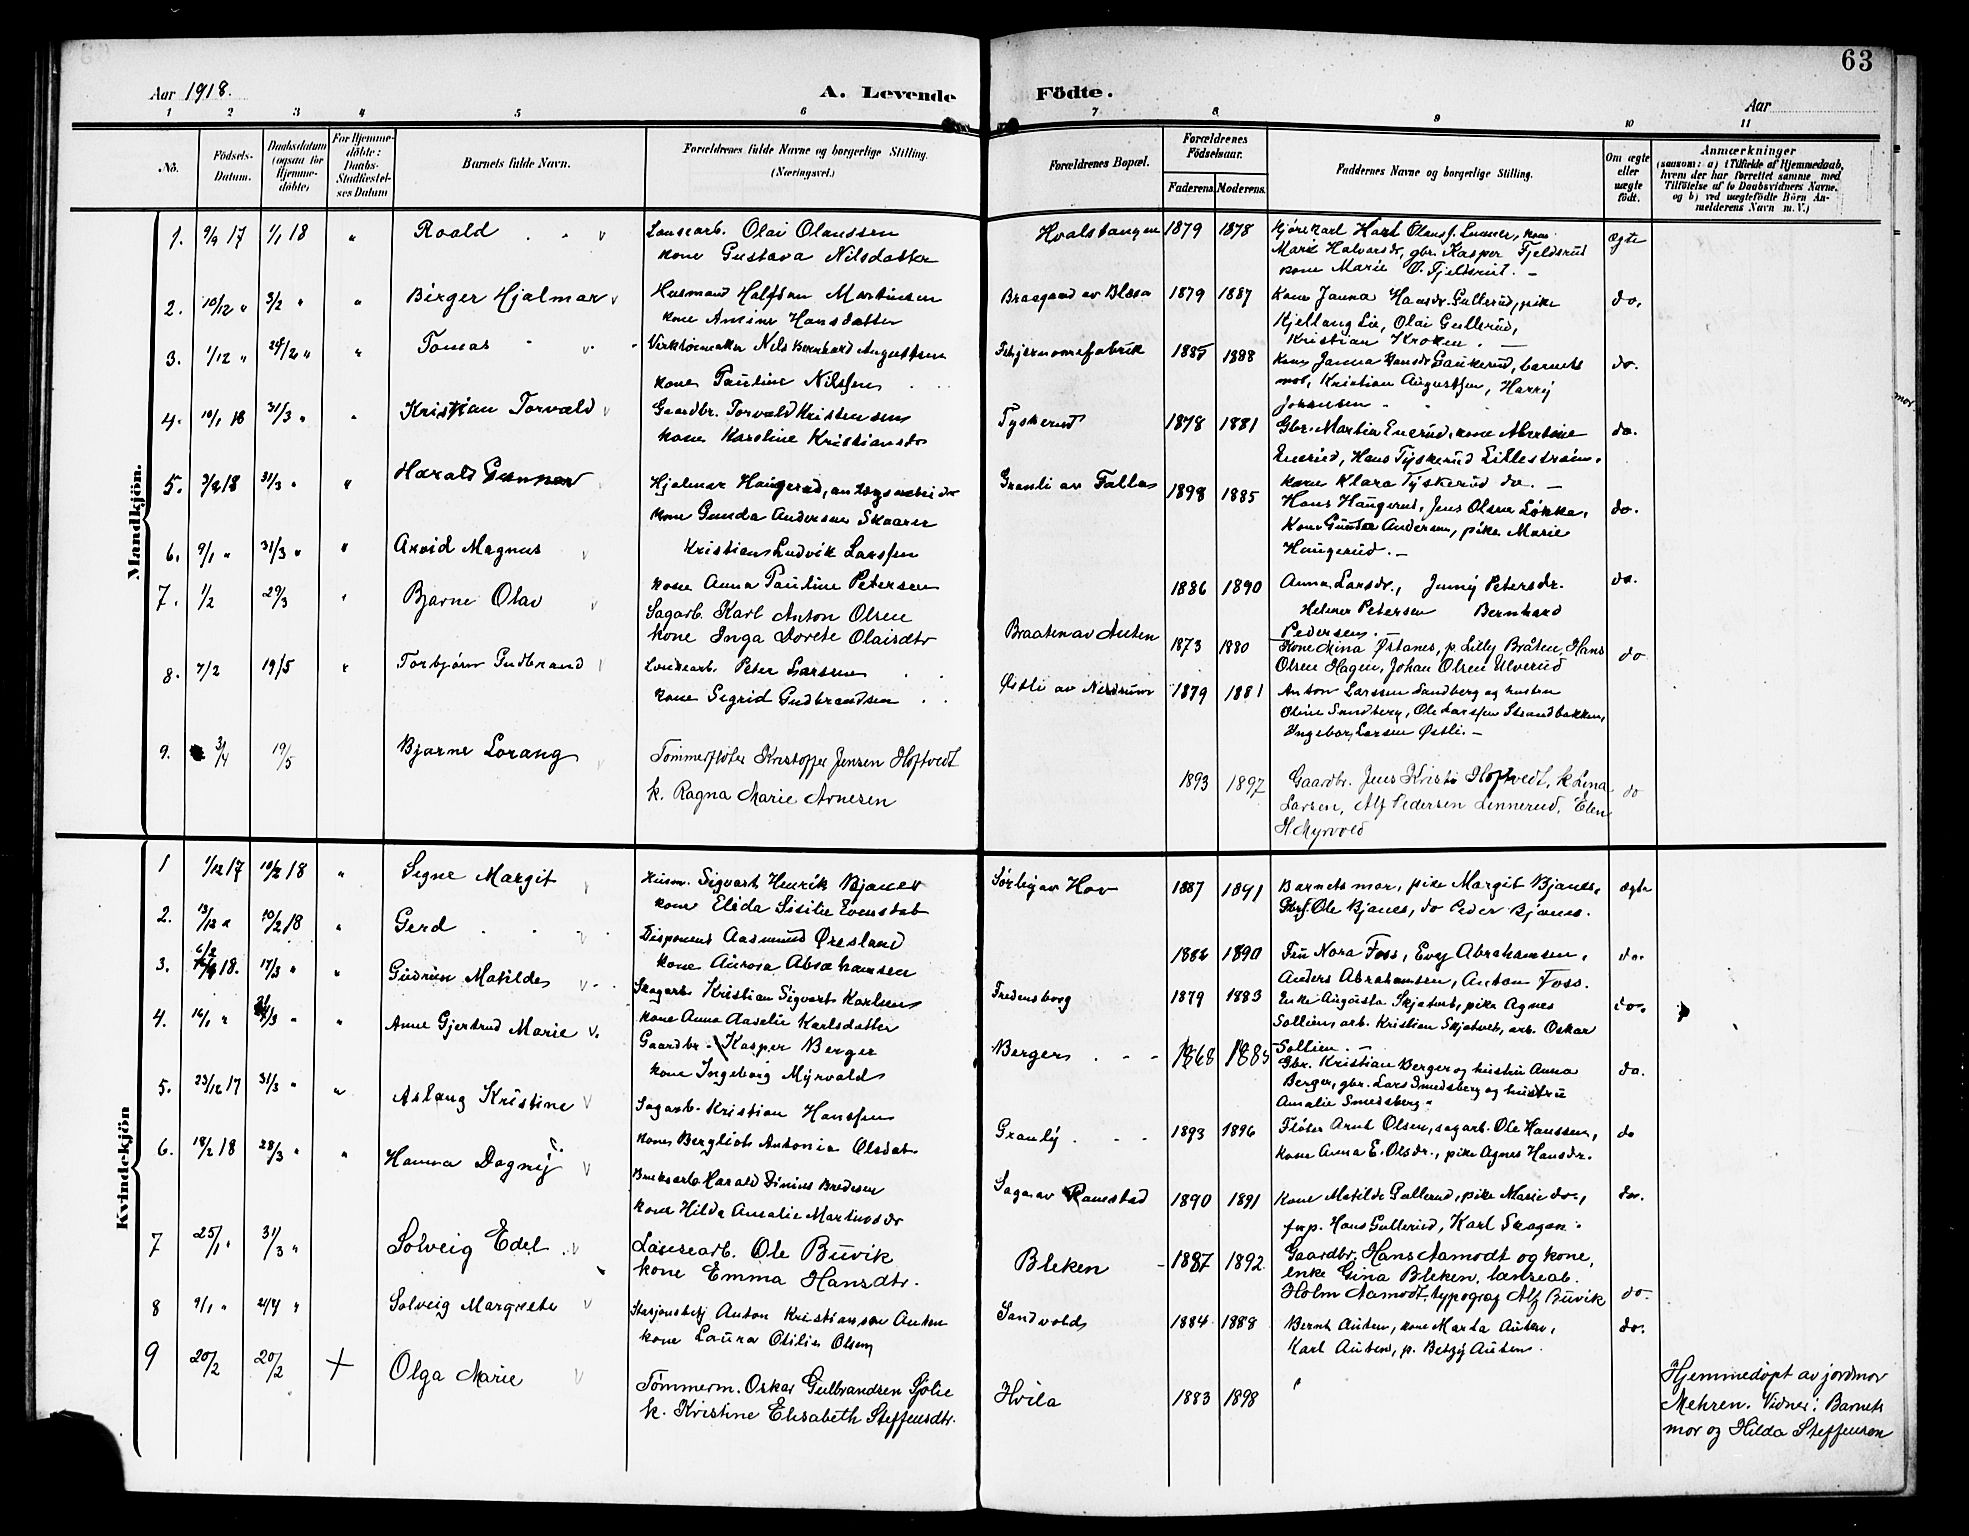 63
Aar 1918.
A. Levende Födte.
Aar
1 2 3 4 5 6 7 8 9 10 11
No.
Födsels-Datum.
Daabsdatum (ogsaa for Hjemme-döbte)
For Hjemme-döbte: Daabs-Stadfæstel-ses Datum
Barnets fulde Navn.
Forældrenes fulde Navne og borgerlige Stilling. (Næringsvei.)
Forældrenes Bopæl.
Forældrenes Födselsaar.
Faderens. Moderens.
Faddernes Navne og borgerlige Stilling.
Om ægte eller uægte födt.
Anmærkninger
(saasom: a) i Tilfælde af Hjemmedaab, hvem der har forrettet samme med Tilföielse af to Daabsvidners Navne. og b) ved uægtefödte Börn Anmelderens Navn m. V.)
Mandkjön.
1. 9/9 17 1/1 18 " Roald Lensearb. Olai Olaussen Hvalstangen 1879 1878 Kjørekarl Karl Olaus. Lunner, kone ægte
kone Gustava Nilsdatter Marie Halvorsdr, gbr. Kasper Fjeldsrud
kone Marie O. Fjeldsrud. -
2. 10/12 " 3/2 " " Birger Hjalmar Husmand Halfdan Martinsen Braagaad av Blæsa 1879 1887 Kone Janna Hansdr. Gullerud, pike do.
kone Amine Hansdatter Kjellaug Lie, Olai Gullerud,
Kristian Kroken. -
3. 1/12 " 24/2 " " Tomas Virksommester Nils Bernhard Augustsen 1885 1888 Kone Janna Hansdr Gaukerud, barnets do.
kone Pauline Nilssen mor, Kristian Augustsen, Harry
Johansen -
4. 10/1 18 31/3 " " Kristian Torvald Gaardbr. Torvald Kristensen Tyskerud 1878 1881 Gbr. Martin Enerud, kone Albertine do.
kone Karoline Kristiansdr Enerud, Hans Tyskerud Lillestrøm,
kone Klara Tyskerud do. -
5. 3/2 18 31/3 " " Harald Gunnar Hjalmar Haugerud, anlægsarbeider Granli av Falla 1898 1885 Hans Haugerud, Jens Olsen Løkke, do.
kone Gunda Andersen Skaarer Kone Gunda Andersen, pike Marie
Haugerud. -
6. 9/1 " 31/3 " " Arvid Magnus Kristian Ludvik Larssen
kone Anna Pauline Petersen 1886 1890 Anna Larsdr., Jenny Petersdr. do.
Helmer Petersen Bernhard
Pedersen. -
7. 1/2 29/3 " Bjarne Olav Sagarb. Karl Anton Olsen Braaten av Auten 1873 1880 Kone Mina Østanes, p. Lilly Bråten, Hans do
kone Inga Dorete Olaisdtr Olsen Hagen, Johan Olsen Ulverud
8. 7/2 19/5 " Torbjørn Gudbrand Lensearb. Peter Larsen Østli av Nerdrum 1879 1881 Anton Larssen Sandberg og hustru
kone Sigrid Gudbrandsen Oline Sandberg, Ole Larssen Strandbakken,
Ingeborg Larsen Østli. -
9. 3/4 19/5 Bjarne Lorang Tømmerfløter Kristoffer Jensen Hoftvedt
k. Ragna Marie Arnesen 1893 1897 Gaardbr. Jens Kristi Hoftvedt, k Lina do
Larsen, Alf Pedersen Linnerud, Elen
H. Myrvold
Kvindekjön
1 1/12 17 10/2 18 " Signe Margit Husm. Sigvart Henrik Bjanes Sørbyav Hov 1887 1891 Barnets mor, pike Margit Bjanes, ægte
kone Elida Sisilie Evensdat Gbrs. Ole Bjanes, do Peder Bjanes.
2. 13/12 " 10/2 18 " Gerd Disponent Aasmund Øresland
kone Aurora Abrahamsen 1882 1890 Fru Nora Foss, Evy Abrahamsen, do.
Anders Abrahamsen, Anton Foss.
3. 6/2 18. 17/3 " " Gudrun Matilde Skogarb Kristian Sigvart Karlsen Fredensborg 1879 1883 Enke Augusta Skjatvet, pike Agnes do.
kone Anna Aaselie Karlsdatter Sollien, arb. Kristian Skjatvet, arb. Oskar
Sollien. -
4. 16/1 " 31/3 " " Anne Gjertrud Marie Gaardbr. Kasper Berger Berger 1868 1885 Gbr. Kristian Berger og hustru Anna do.
kone Ingeborg Myrvold Berger, gbr. Lars Smedsberg og hustru
Amalie Smedsberg.
5. 23/12 17 31/3 " " Aslaug Kristine Sagarb. Kristian Hanssen Granly 1893 1896 Fløter Arnt Olsen, sagarb. Ole Hanssen, do
kone Bergliot Antonie Olsdat kone Anna E. Olsdr., pike Agnes Hansdr.
6. 18/2 18 28/3 " " Hanna Dagny Bruksarb Harald Dinius Bredesen Sagen av Ramstad 1890 1891 Kone Matilde Gullerud, pike Marie do., do.
kone Hilda Amalie Martinsdr fhp. Hans Gullerud, Karl Skogen.
7 25/1 " 31/3 " Solveig Edel Lænsearb. Ole Buvik Bleken 1887 1892 Gaardbr. Hans Aamodt og kone,
kone Emma Hansdtr. enke Gina Bleken, lænsearb.
Holm Aamodt, typograf Alf Buvik do.
8 9/1 " 21/4 " Solveig Margrete Stasjonsbetj Anton Kristiansen Auten Sandvold 1884 1888 Bernt Auten, kone Marta Auten, do.
kone Laura Otilie Olsen Karl Auten, p. Betzy Auten.
9 20/2 20/2 + Olga Marie Tømmerm. Oskar Gulbrandsen Sjølie Hvila 1883 1898 "
k. Kristine Elisabeth Steffensdtr.
Hjemmedøpt av jordmor
Mehren. Vidner: Barnets
mor og Hilda Steffensen